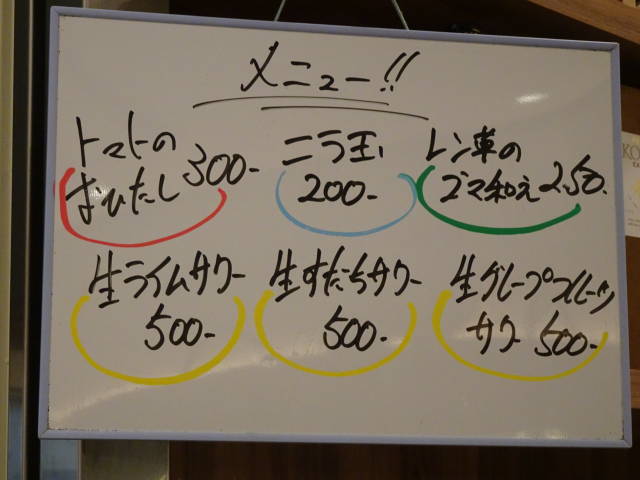 メニュー!!
トマトの
おひたし 300-
ニラ玉
200-
レン草の
ゴマ和え 250.
生ライムサワー
500-
生すだちサワー
500-
生グレープフルーツ
サワー 500-